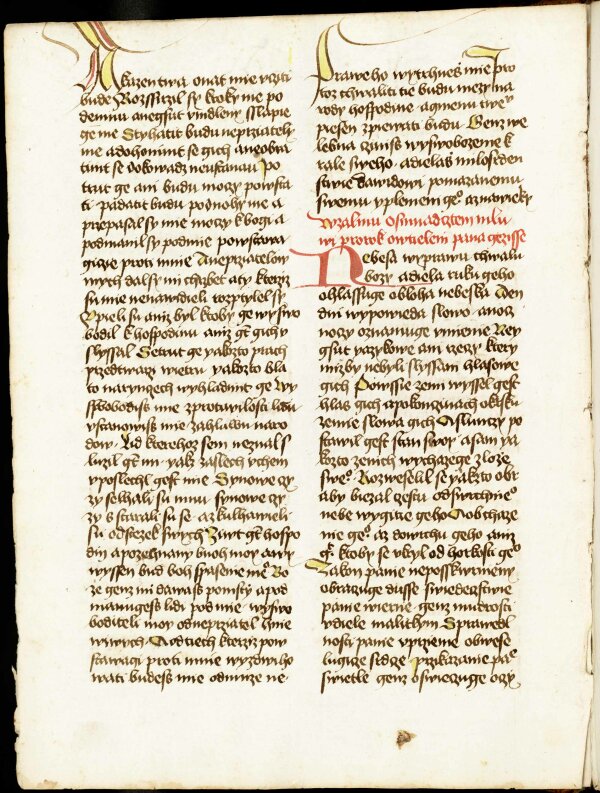 A kazen twa onat mie vczti
bude Rozssirzil sy kroky me po
demnu anegsut vmdleny sslapie
ge me Styhati budu neprziately
me adohonim se gich aneobra
tim se dokowadz neustanau Po
truc ge ani budu moczy powsta
ti padati budu podnohy me a
przepasal sy mie moczy k bogi a
podmanil sy podmie powstawa
gicze proti mnie Aneprziatelow
mych dal sy mi chrzbet aty kterzi
su mie nenawidieli rozptylel sy
Wpieli su aniz byl ktoby ge wyswo
bodil k hospodinu aniz gt gich v
slyssal Setruc ge yakzto prach
przedtwarzi wietru yakzto bla
to naryncziech wyhladim ge Wy
swobodiss mie zprotiwilosti lidu
vstanowiss mie zahlawu naro
dow Lid kterehoz sem neznal s
luzil gt mi yakz zaslech vchem
vposlechl gest mie Synowe cy
zy selhali su mnu synowe cy
zy sstarali su se azkulhaweli
su odstezek swych Ziwt gt hospo
din apozehnany buoh moy aaw
wyssen bud boh spasenie me° Bo
ze genz mi dawass pomsty apod
manugess lidi pod mie wyswo
boditeli moy odneprzatel mie
wnych Aodtiech kterziz pow
stawagi proti mnie wyzdwiho
wati budess mie odmuze ne-
Praweho wytrhness mie Pro
toz chwaliti tie budu mezy na
rody hospodine agmenu twe°
piesen zpiewati budu Genz we
lebna czinss wyswobozenie k
rale sweho adielass milosrden
stwie dawidowi pomazanemu
swemu yplemeni ge° aznawieky
Wzalmu osmnadcztem mlu
wi prorok owtieleni pana gezisse
Nebesa wyprawu chwalu
bozy adiela ruku geho
ohlassuge obloha nebeska Den
dni wypowieda slowo anocz
noczy oznamuge vmienie Ney
gsut yazykowe ani rzeczy ktery
mizby nebyli slyssani hlasowe
gich Powssie zemi wyssel gest
hlas gich apokonczinach okrsku
zemie slowa gich Osluncy po
stawil gest stan swoy asam ya
kozto zenich wychazege zloze
swe° Rozweselil se yakzto obr
aby biezal czestu od swrchnie°
nebe wygitie geho Aobchaze
nie ge° az dowrchu geho aniz
gt ktoby se vkryl od horkosti ge°
Zakon panie neposskwrneny
obraczuge dusse swiedecstwie
panie wierne genz mudrosti
vdiele malitkym Sprawedl
nosti panie vprzieme obwese
lugicze srdcze Przikazanie pa°
swietle genz oswieczuge oczy